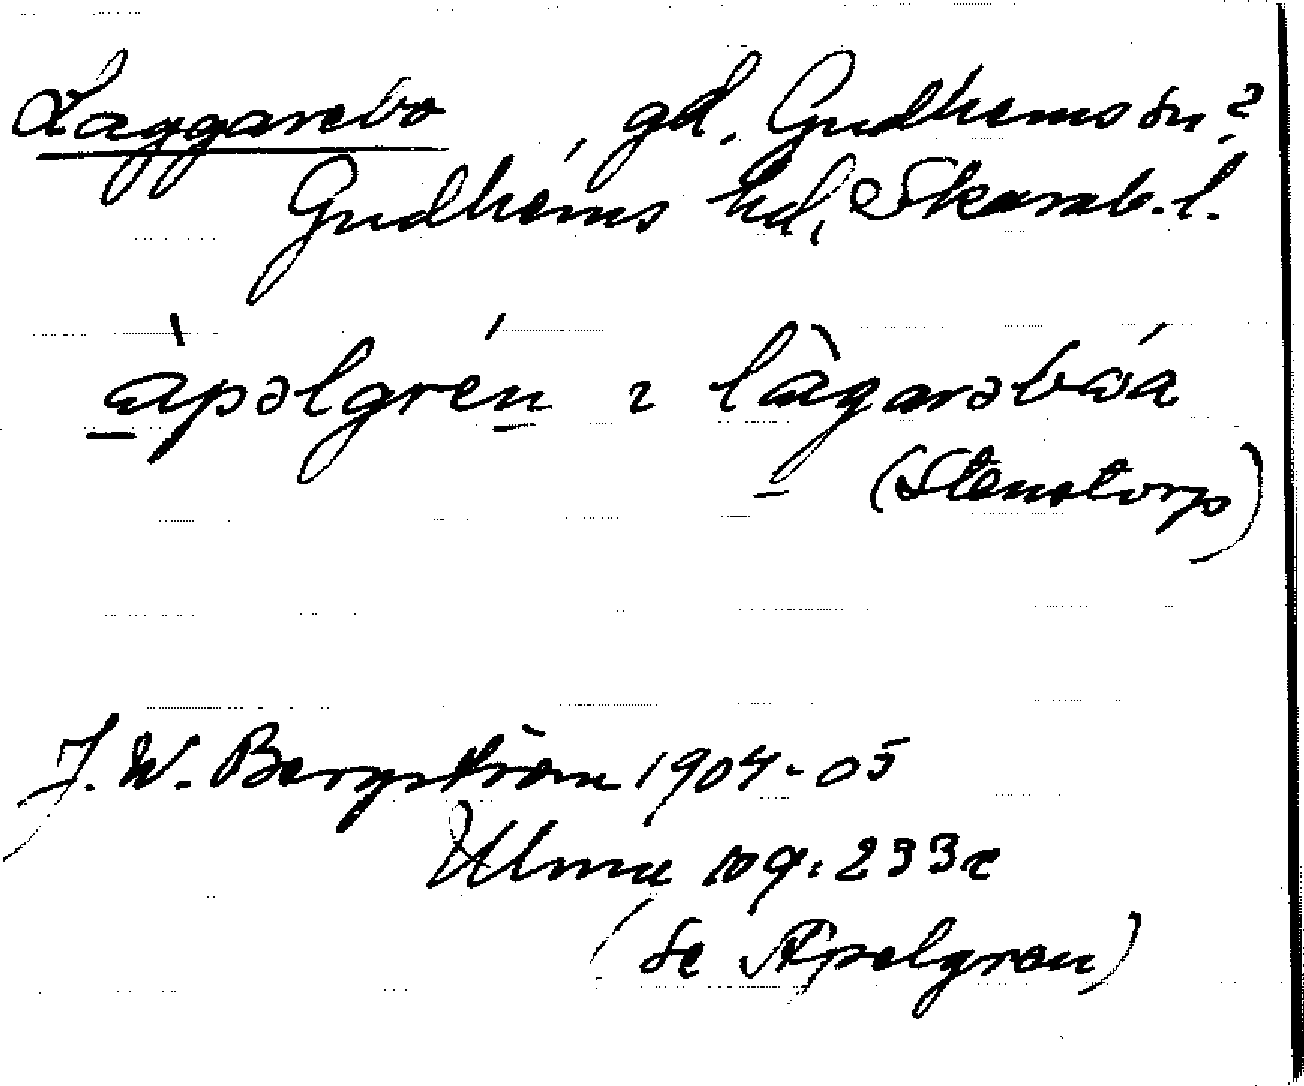 Laggarebo, gd. Gudhems sn?
Gudhems hd, Skarab. l.
àpəlgrén ı làgarəbóa
(Stenstorp)
J. W. Bergström 1904-05
Ulma 109:233c
(se Apelgren)